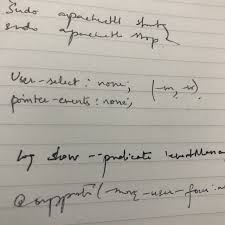 sudo apachectl start
sudo apachectl stop
user-select: none;
pointer-events: none;
log show --predicate
@supports (-moz-user-